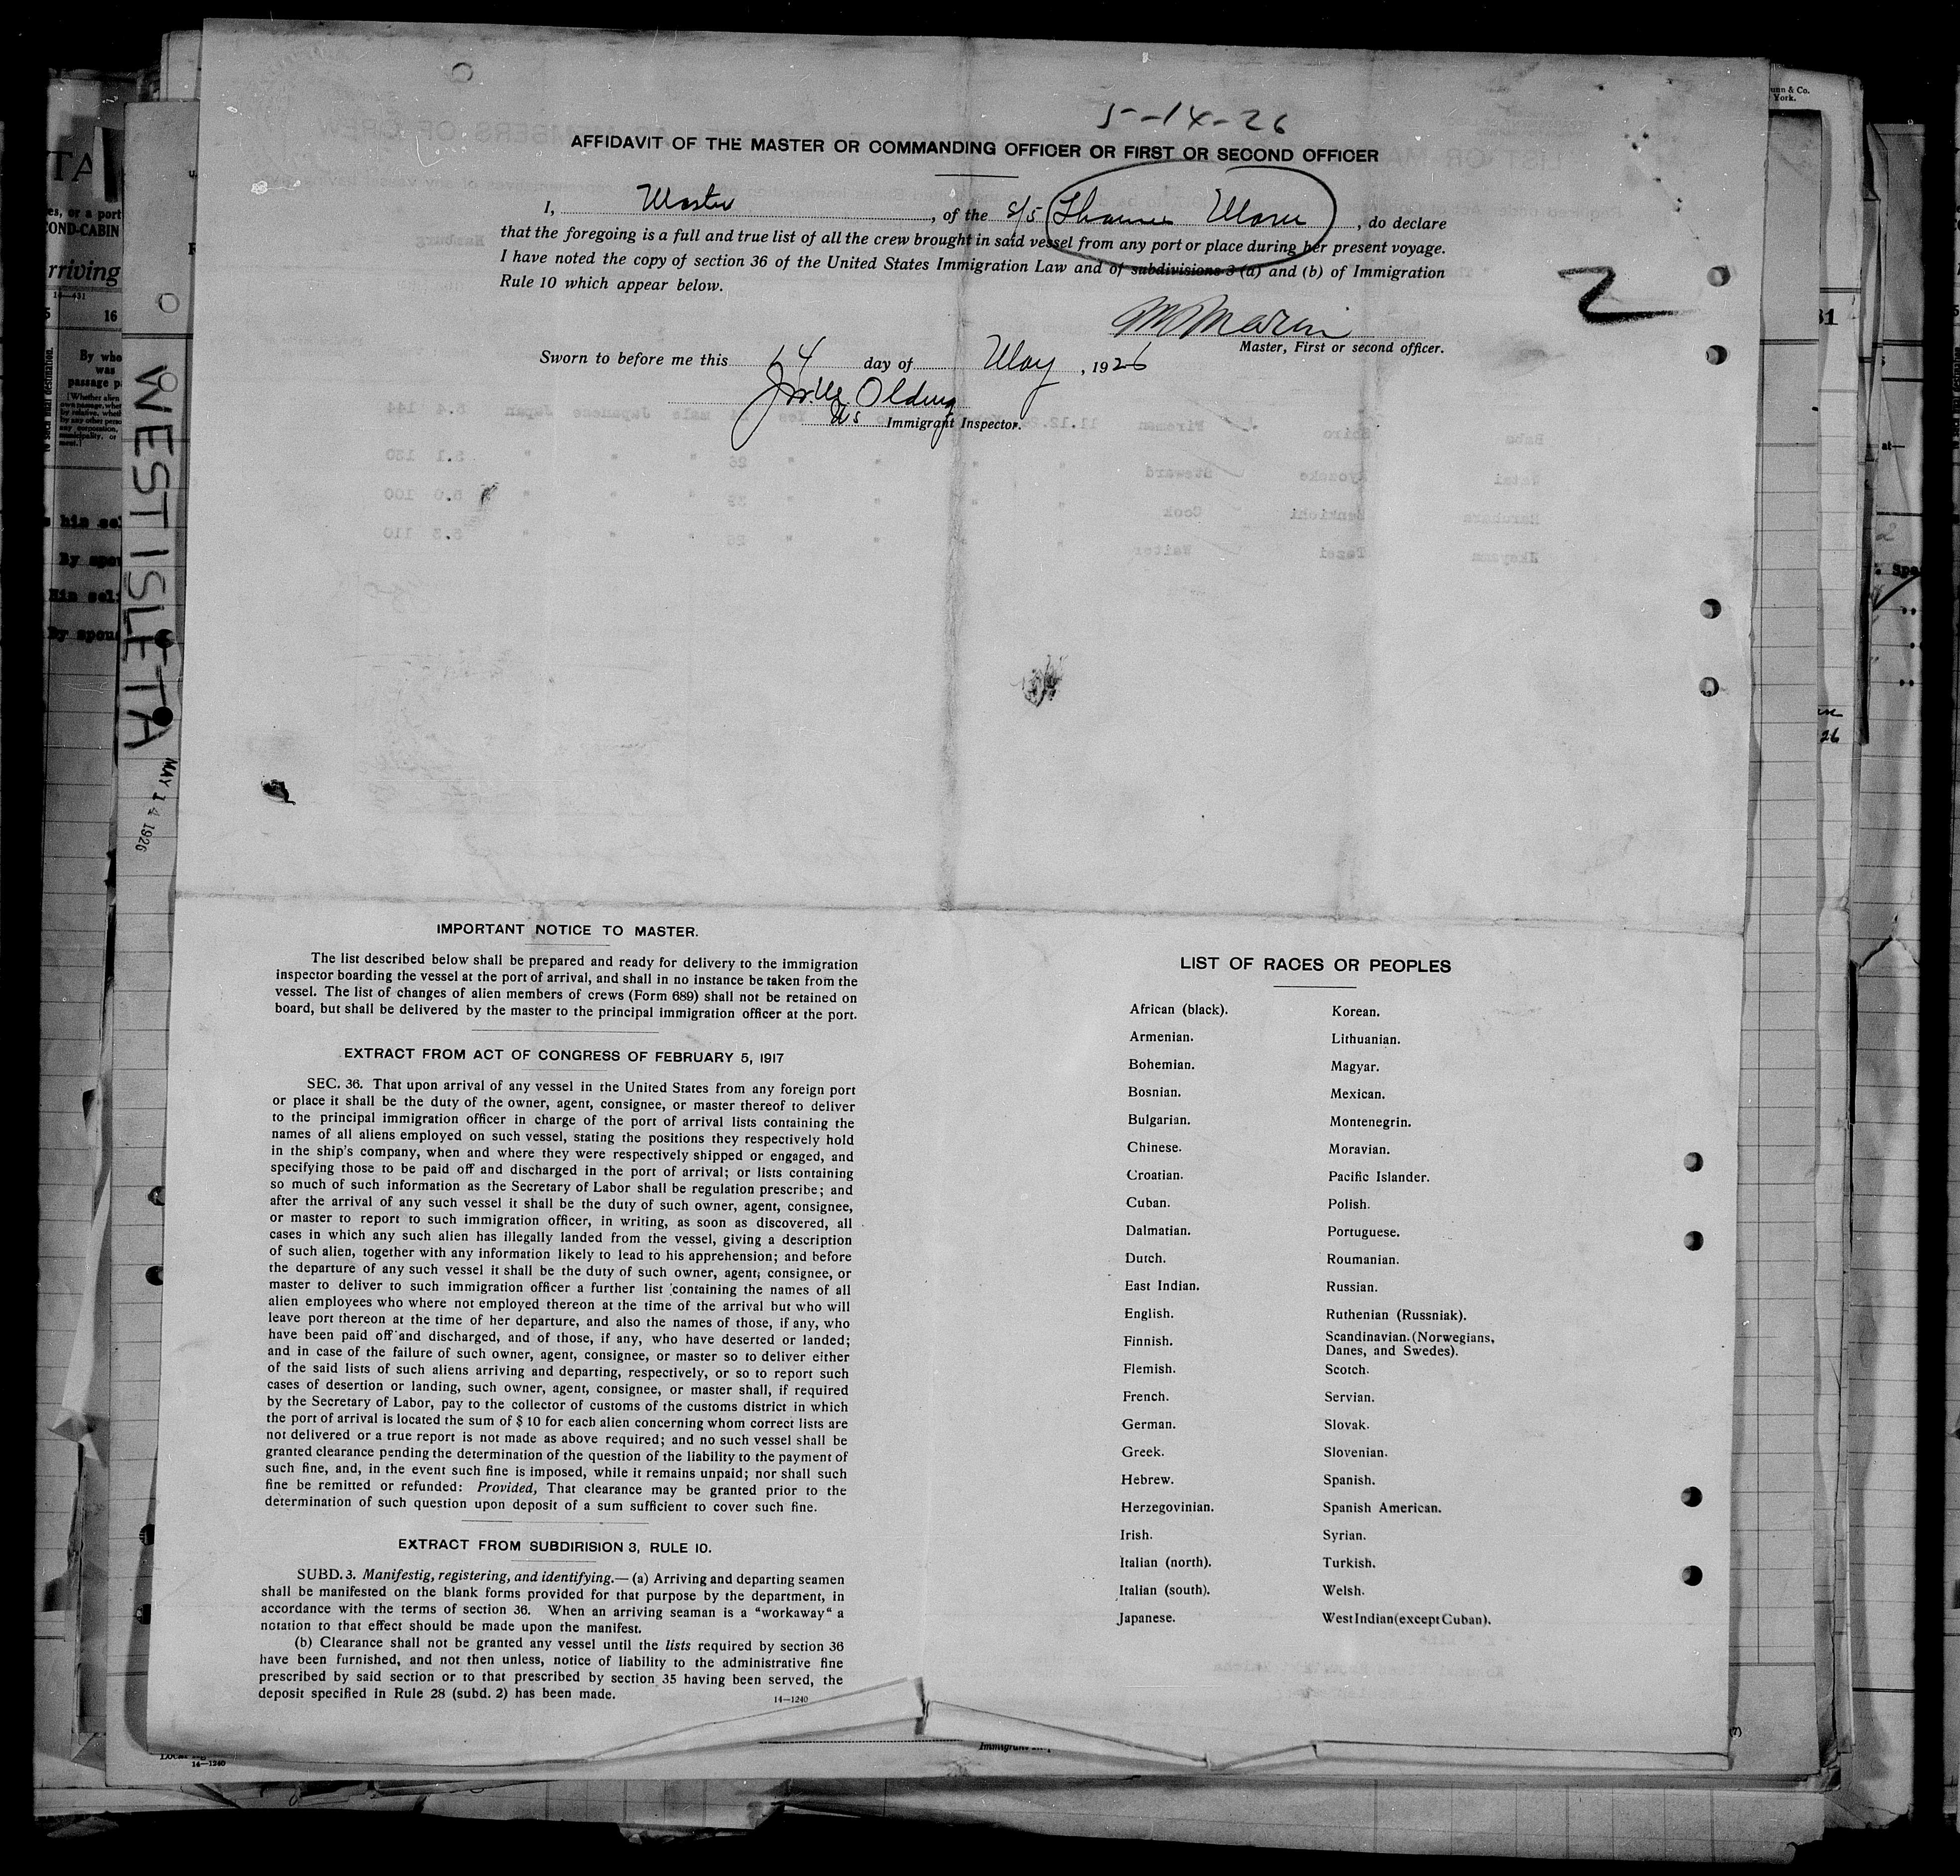 5-14-26
AFFIDAVIT OF THE MASTER OR COMMANDING OFFICER OR FIRST OR SECOND OFFICER
I, Master, of the S/S Maru, do declare
that the foregoing is a full and true list of all the crew brought in said vessel from any port or place during her present voyage.
I have noted the copy of section 36 of the United States Immigration Law and of subdivisions 3 (a) and (b) of Immigration
Rule 10 which appear below.
2
Master, First or second officer.
Sworn to before me this 14 day of May, 1926
Immigrant Inspector.
WEST ISLETA
MAY 14 1926
IMPORTANT NOTICE TO MASTER.
The list described below shall be prepared and ready for delivery to the immigration
inspector boarding the vessel at the port of arrival, and shall in no instance be taken from the
vessel. The list of changes of alien members of crews (Form 689) shall not be retained on
board, but shall be delivered by the master to the principal immigration officer at the port.
EXTRACT FROM ACT OF CONGRESS OF FEBRUARY 5, 1917
SEC. 36. That upon arrival of any vessel in the United States from any foreign port
or place it shall be the duty of the owner, agent, consignee, or master thereof to deliver
to the principal immigration officer in charge of the port of arrival lists containing the
names of all aliens employed on such vessel, stating the positions they respectively hold
in the ship's company, when and where they were respectively shipped or engaged, and
specifying those to be paid off and discharged in the port of arrival; or lists containing
so much of such information as the Secretary of Labor shall be regulation prescribe; and
after the arrival of any such vessel it shall be the duty of such owner, agent, consignee,
or master to report to such immigration officer, in writing, as soon as discovered, all
cases in which any such alien has illegally landed from the vessel, giving a description
of such alien, together with any information likely to lead to his apprehension; and before
the departure of any such vessel it shall be the duty of such owner, agent, consignee, or
master to deliver to such immigration officer a further list containing the names of all
alien employees who where not employed thereon at the time of the arrival but who will
leave port thereon at the time of her departure, and also the names of those, if any, who
have been paid off and discharged, and of those, if any, who have deserted or landed;
and in case of the failure of such owner, agent, consignee, or master so to deliver either
of the said lists of such aliens arriving and departing, respectively, or so to report such
cases of desertion or landing, such owner, agent, consignee, or master shall, if required
by the Secretary of Labor, pay to the collector of customs of the customs district in which
the port of arrival is located the sum of $ 10 for each alien concerning whom correct lists are
not delivered or a true report is not made as above required; and no such vessel shall be
granted clearance pending the determination of the question of the liability to the payment of
such fine, and, in the event such fine is imposed, while it remains unpaid; nor shall such
fine be remitted or refunded: Provided, That clearance may be granted prior to the
determination of such question upon deposit of a sum sufficient to cover such fine.
EXTRACT FROM SUBDIRISION 3, RULE 10.
SUBD. 3. Manifestig, registering, and identifying.— (a) Arriving and departing seamen
shall be manifested on the blank forms provided for that purpose by the department, in
accordance with the terms of section 36. When an arriving seaman is a "workaway" a
notation to that effect should be made upon the manifest.
(b) Clearance shall not be granted any vessel until the lists required by section 36
have been furnished, and not then unless, notice of liability to the administrative fine
prescribed by said section or to that prescribed by section 35 having been served, the
deposit specified in Rule 28 (subd. 2) has been made.
14—1240
LIST OF RACES OR PEOPLES
African (black). Korean.
Armenian. Lithuanian.
Bohemian. Magyar.
Bosnian. Mexican.
Bulgarian. Montenegrin.
Chinese. Moravian.
Croatian. Pacific Islander.
Cuban. Polish.
Dalmatian. Portuguese.
Dutch. Roumanian.
East Indian. Russian.
English. Ruthenian (Russniak).
Finnish. Scandinavian.(Norwegians,
Danes, and Swedes).
Flemish. Scotch.
French. Servian.
German. Slovak.
Greek. Slovenian.
Hebrew. Spanish.
Herzegovinian. Spanish American.
Irish. Syrian.
Italian (north). Turkish.
Italian (south). Welsh.
Japanese. West Indian (except Cuban).
14—1240